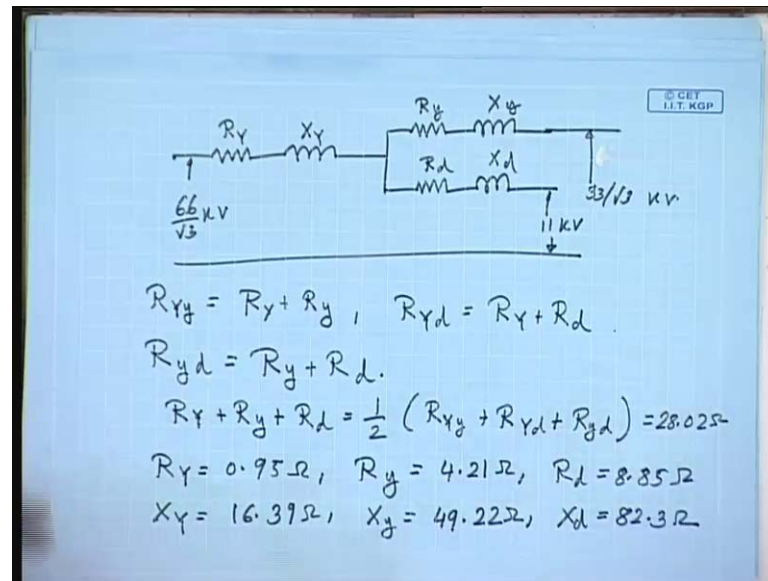 © CET
I.I.T. KGP
R_y X_y
R_Y X_Y
R_d X_d
66/√3 KV
33/√3 KV.
11 KV
R_Yy = R_Y + R_y, R_Yd = R_Y + R_d.
R_yd = R_y + R_d.
R_Y + R_y + R_d = 1/2 (R_Yy + R_Yd + R_yd) = 28.02Ω
R_Y = 0.95Ω, R_y = 4.21Ω, R_d = 8.85Ω
X_Y = 16.39Ω, X_y = 49.22Ω, X_d = 82.3Ω